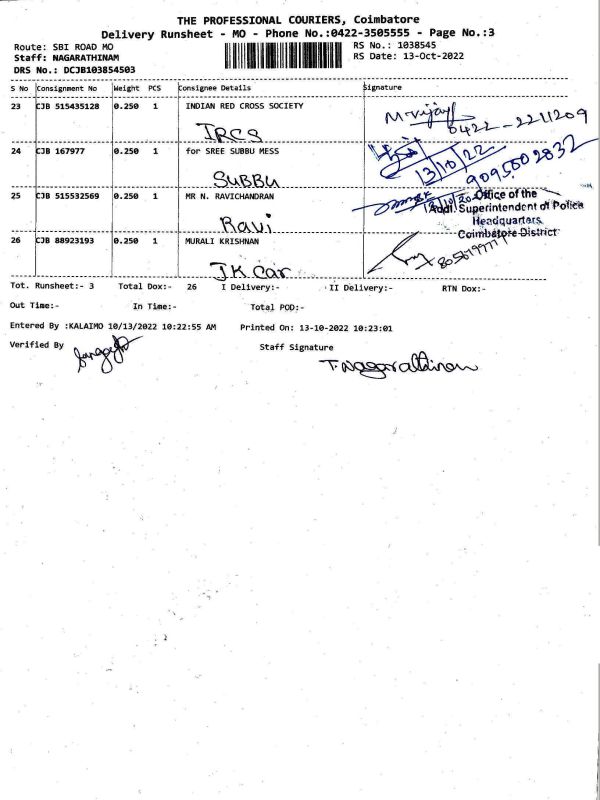 THE PROFESSIONAL COURIERS, Coimbatore
Delivery Runsheet - MO - Phone No.:0422-3505555 - Page No.:3
Route: SBI ROAD MO RS No.: 1038545
Staff: NAGARATHINAM RS Date: 13-Oct-2022
DRS No.: DCJB103854503
S No Consignment No Weight PCS Consignee Details Signature
23 CJB 515435128 0.250 1 INDIAN RED CROSS SOCIETY M.vijay
IRCS 0422-2211209
24 CJB 167977 0.250 1 for SREE SUBBU MESS
SUBBU 13/10/22 9095502832
25 CJB 515532569 0.250 1 MR N. RAVICHANDRAN Office of the
Addl. Superintendent of Police
Ravi Headquarters
Coimbatore District
26 CJB 88923193 0.250 1 MURALI KRISHNAN
JK Car
Tot. Runsheet:- 3 Total Dox:- 26 I Delivery:- II Delivery:- RTN Dox:-
Out Time:- In Time:- Total POD:-
Entered By :KALAIMO 10/13/2022 10:22:55 AM Printed On: 13-10-2022 10:23:01
Verified By Staff Signature
T. Nagarathinam